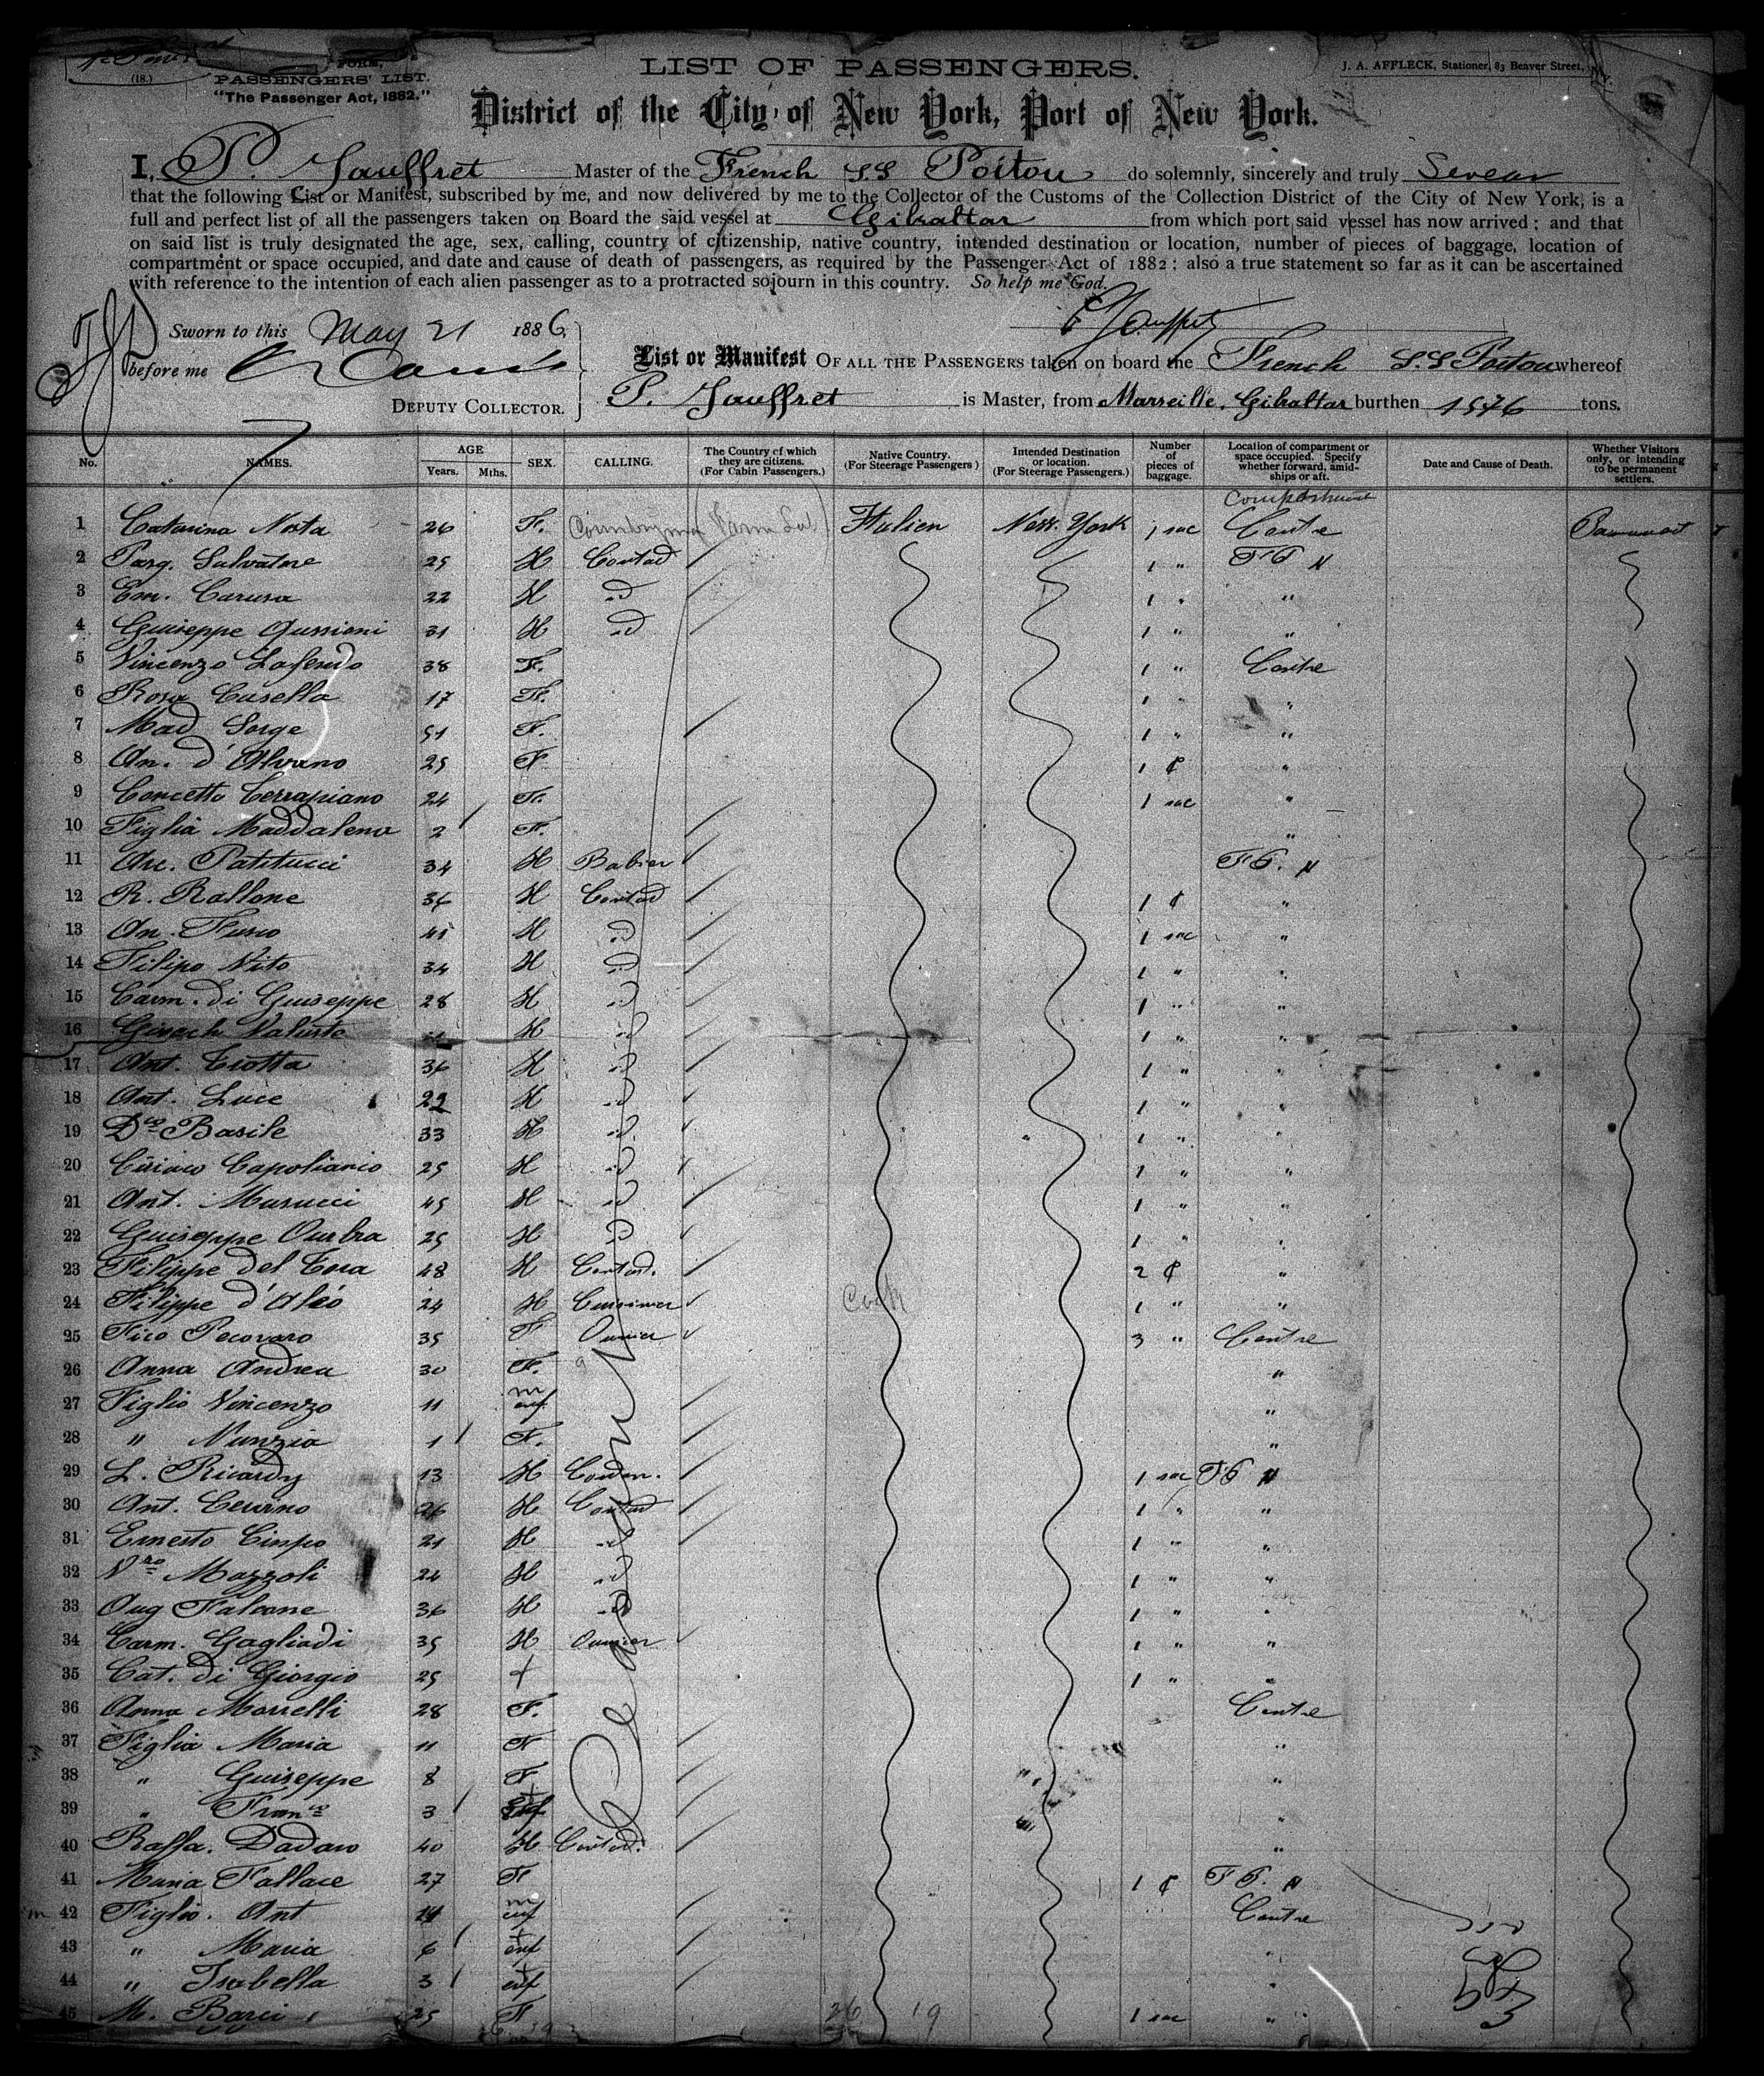 (18.)
FORM,
PASSENGERS' LIST.
"The Passenger Act, 1882."
LIST OF PASSENGERS.
J. A. AFFLECK, Stationer, 83 Beaver Street, N.Y.
District of the City of New York, Port of New York.
I, P. Jauffret Master of the French SS Poitou do solemnly, sincerely and truly Swear
that the following List or Manifest, subscribed by me, and now delivered by me to the Collector of the Customs of the Collection District of the City of New York, is a
full and perfect list of all the passengers taken on Board the said vessel at Gibraltar from which port said vessel has now arrived; and that
on said list is truly designated the age, sex, calling, country of citizenship, native country, intended destination or location, number of pieces of baggage, location of
compartment or space occupied, and date and cause of death of passengers, as required by the Passenger Act of 1882; also a true statement so far as it can be ascertained
with reference to the intention of each alien passenger as to a protracted sojourn in this country. So help me God.
P Jauffret
Sworn to this May 21 1886
before me
DEPUTY COLLECTOR.
List or Manifest OF ALL THE PASSENGERS taken on board the French S.S Poitou whereof
P. Jauffret is Master, from Marseille, Gibraltar burthen 1576 tons.
No. NAMES. AGE Years. Mths. SEX. CALLING. The Country of which they are citizens. (For Cabin Passengers.) Native Country. (For Steerage Passengers) Intended Destination or location. (For Steerage Passengers.) Number of pieces of baggage. Location of compartment or space occupied. Specify whether forward, amidships or aft. Date and Cause of Death. Whether Visitors only, or intending to be permanent settlers.
Compartment
1 Catarina Nosta 26 F. Countryman Farm Lab Italien New York 1 sac Centre
2 Parq. Salvatore 25 H Contad 1 "
3 Em. Carusa 22 H id 1 " "
4 Guiseppe Aussioni 31 H id 1 " "
5 Vincenzo Lafendo 38 F. 1 " Centre
6 Rosa Casella 17 F. 1 " "
7 Mad Sorge 51 F. 1 " "
8 An. d'Alvano 25 F 1 ¢ "
9 Concetta Cerrapiano 24 F. 1 sac "
10 Figlia Maddalena 2 F. "
11 An. Patitucci 34 H Babier
12 R. Rallone 36 H Contad 1 ¢ "
13 An. Fusco 41 H id 1 sac "
14 Filipo Vito 34 H id 1 " "
15 Carm. di Guiseppe 28 H id 1 " "
16 H id 1 " "
17 Ant. Ciotta 36 H id 1 " "
18 Ant. Luce 22 H id 1 " "
19 Dco Basile 33 H id 1 "
20 Ciriaco Capolianio 25 H id 1 " "
21 Ant. Marucci 45 H id 1 " "
22 Guiseppe Ourbra 25 H id 1 " "
23 Filippe del Cora 48 H Contad. 2 ¢ "
24 Filippe d'Aleo 24 H Cuisinier Cook 1 " "
25 Fico Pecoraro 35 F Ouvrier 3 " Centre
26 Anna Andrea 30 F. "
27 Figlio Vincenzo 11 m enf. "
28 " Nunzia 1 F. "
29 L. Ricardy 13 H 1 sac
30 Ant. Cesarino 26 H Contad 1 " "
31 Ernesto Cinpo 21 H id 1 " "
32 Vro Mazzoli 24 H id 1 " "
33 Aug Falcone 36 H id 1 " "
34 Carm. Gagliadi 35 H Ouvrier 1 " "
35 Cat. di Giorgio 25 1 " "
36 Anna Morrelli 28 F. Centre
37 Figlia Maria 11 F "
38 " Guiseppe 8 F "
39 " Franca 3 "
40 Raffa. Dadaro 40 H Contad. "
41 Maria Fallace 27 F 1 ¢
42 Figlio. Ant m enf Centre
43 " Maria 6 enf "
44 " Isabella 3 enf "
45 M. Barci 25 F 1 sac "
26 19